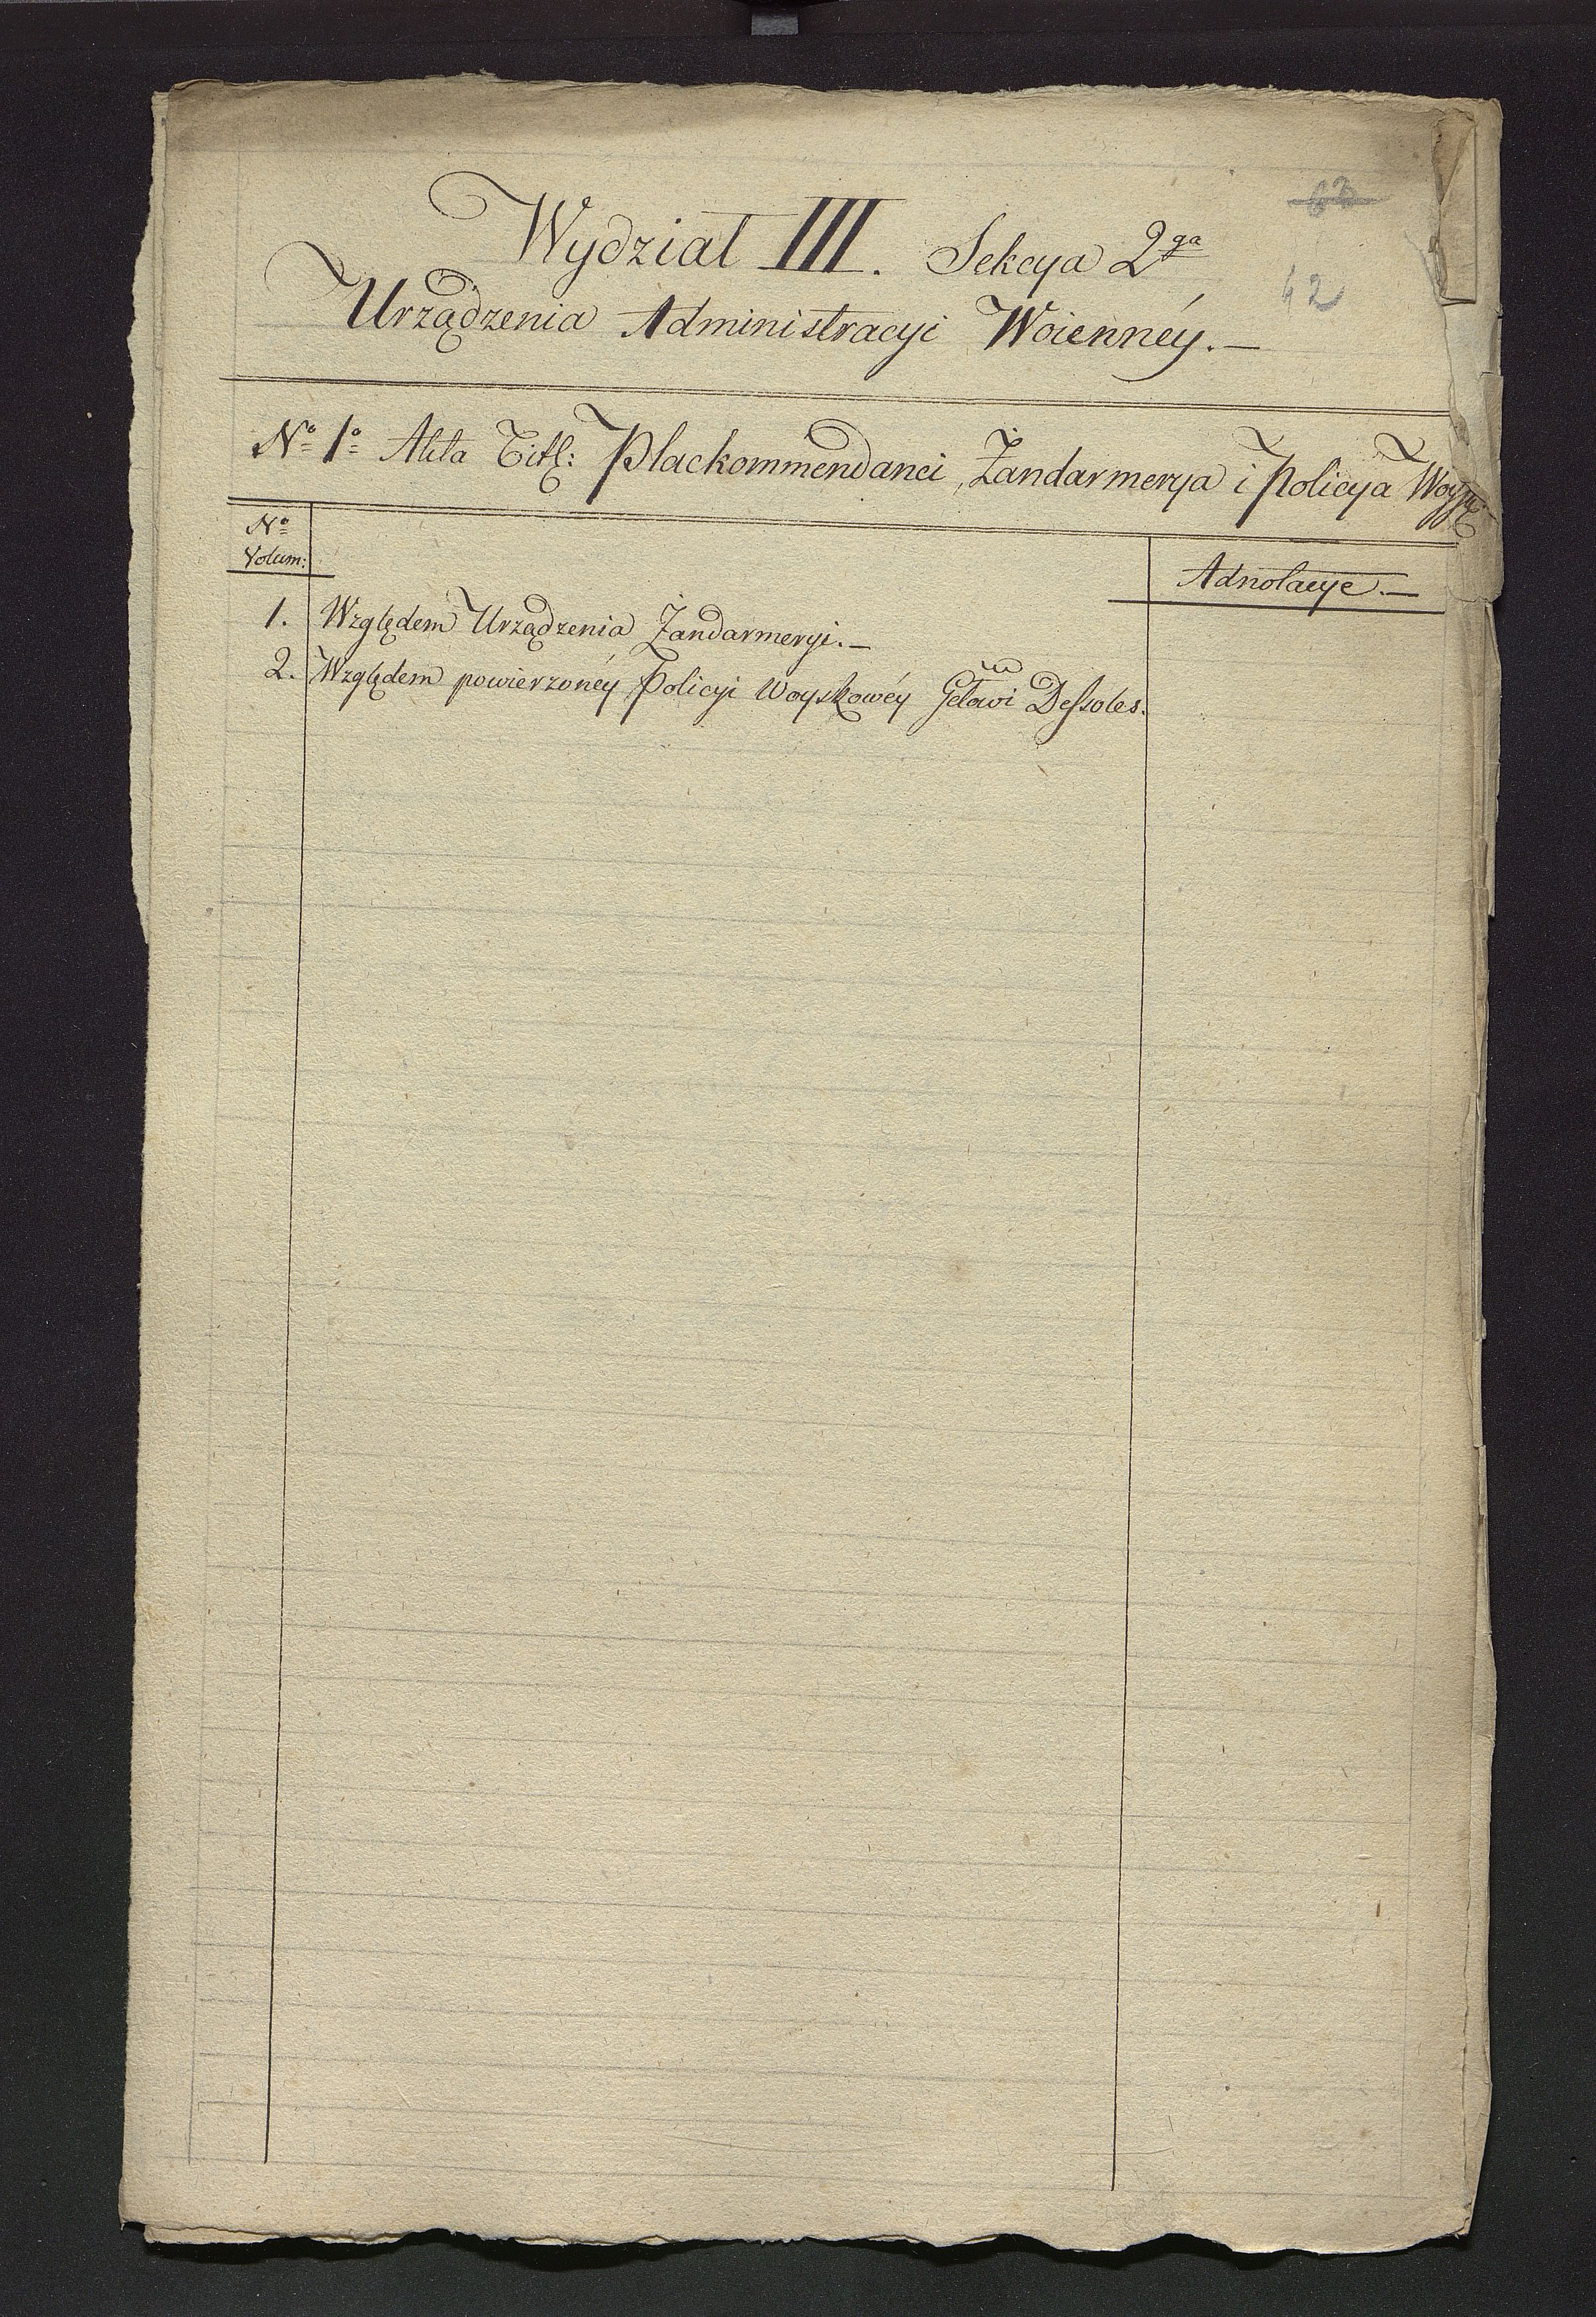 63
Wydział III. Sekcya 2ga
42
Urządzenia Administracyi Woienney.—
No 1o Akta Titl: Plackommendanci, Żandarmerya i Policya
No
Volum:
Adnotacye.—
1. Względem Urządzenia Żandarmeryi.—
2. Względem powierzonéy Policyi Woyskowéy Gełowi Dessoles.